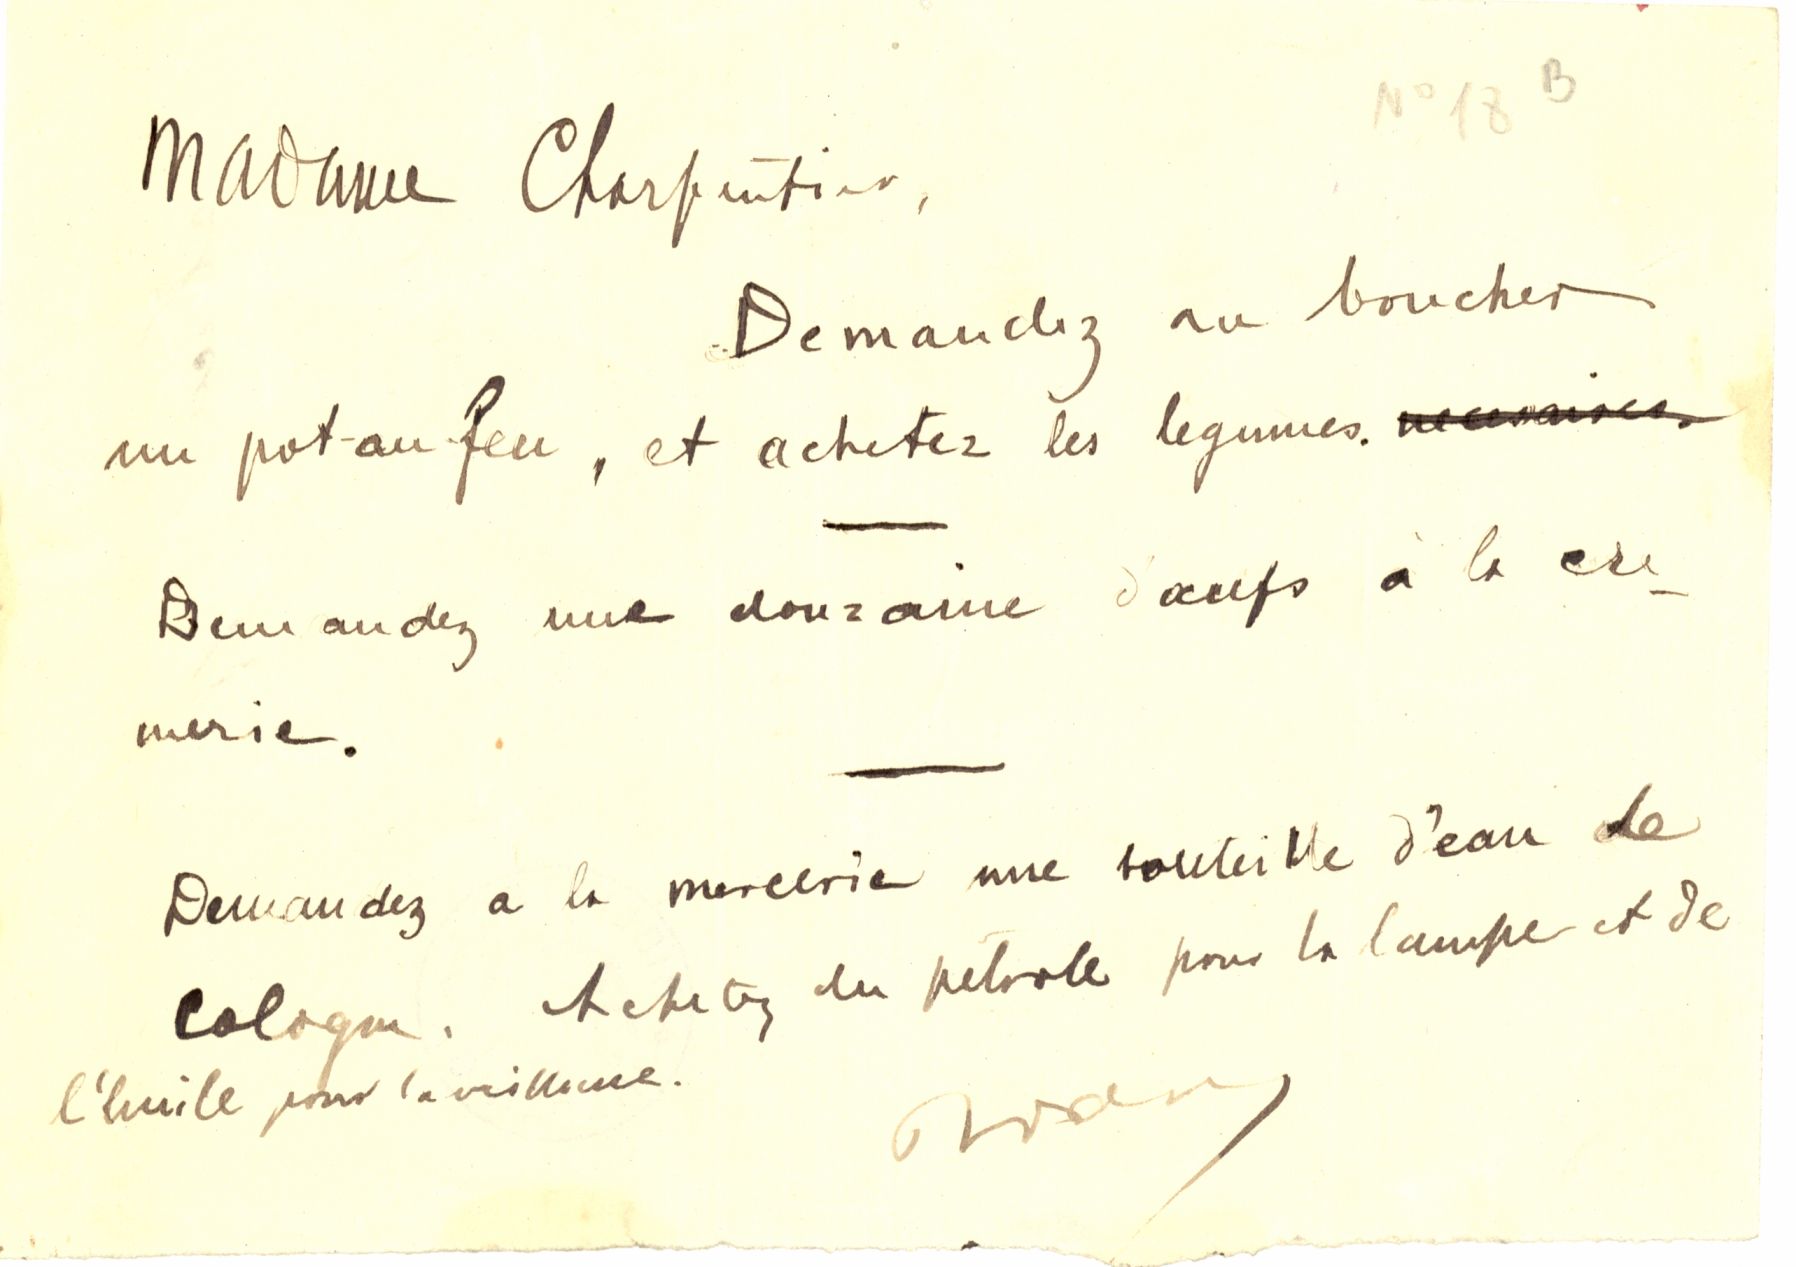 N° 18 B
Madame Charpentier,
Demandez au boucher
un pot-au-feu, et achetez les legumes. necessaires.
Demandez une douzaine d'œufs à la cre-
merie.
Demandez a la mercerie une bouteille d'eau de
Cologne. Achetez du pétrole pour la lampe et de
l'huile pour la veilleuse.
Rodin